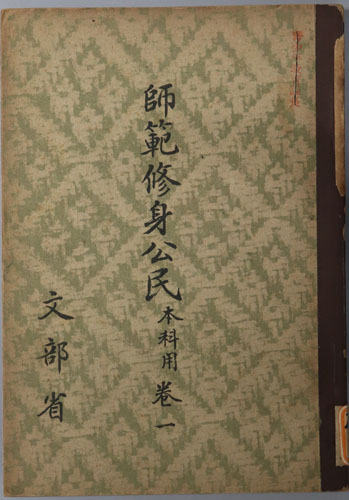 師範修身公民本科用 巻一
文部省